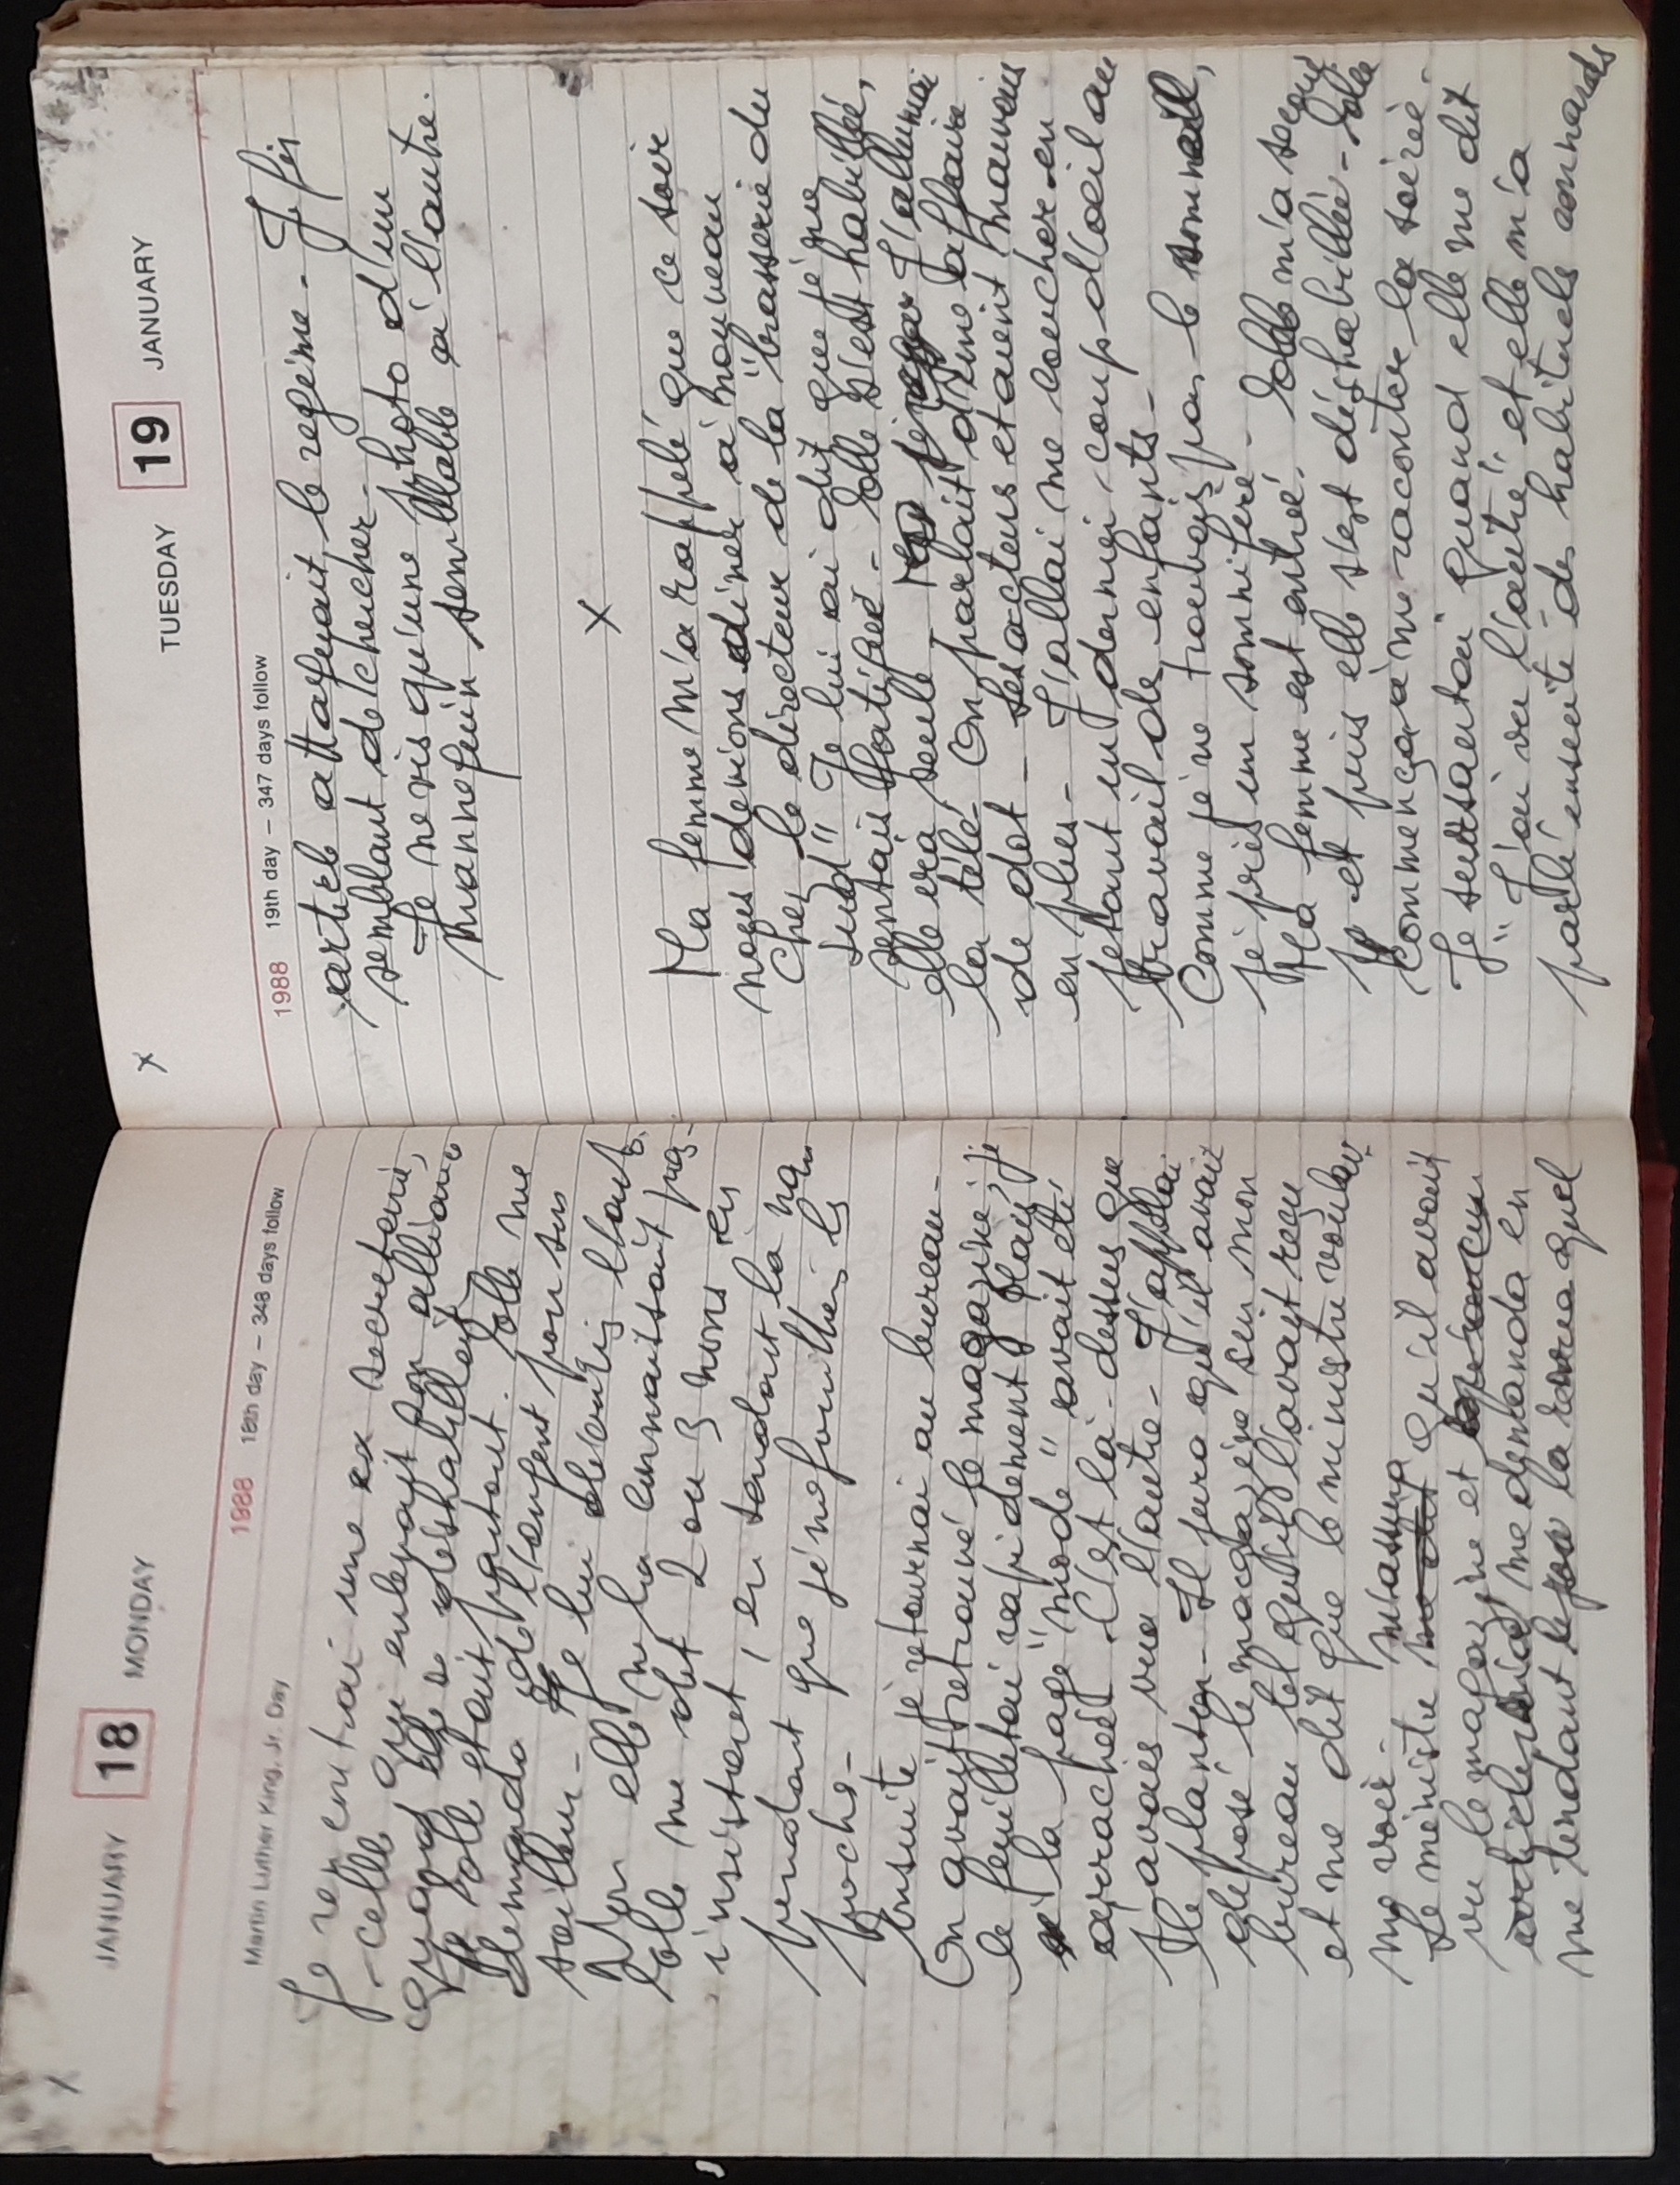 JANUARY 18 MONDAY
1988 18th day – 348 days follow
Martin Luther King, Jr. Day
Je rencontrai une ex secrétaire,
- celle qui envoyait
quand elle se déshabillait
Elle était partout. Elle me
demanda de l'argent pour son
tailleur - Je lui
Mon elle ne la connaissait pas -
Elle me dit 2 ou 3 noms en
insistant, en tendant la main
pendant que je me fouillai les
poche -
Ensuite je retournai au bureau -
On avait retrouvé le magazine, je
le feuilletai rapidement mais
la page "mode" avait été
arrachée. C'est là-dessus que
j'avais vu l'autre - J'appelai
le planton - Il jura qu'il avait
déposé le magazine sur mon
bureau tel qu'il l'avait reçu
et me dit que le ministre voulait
me voir -
Le ministre m'assura qu'il avait
vu le magazine et
me demanda en
me tendant la revue quel
x
TUESDAY 19 JANUARY
1988 19th day – 347 days follow
article attaquait le régime - Je fis
semblant de chercher -
Je ne vis qu'une photo d'un
mannequin semblable à l'autre.
x
Ma femme m'a rappelé que ce soir
nous devions dîner à nouveau
chez le directeur de la "brasserie du
sud" Je lui ai dit que je me
sentais fatigué - Elle s'est habillée,
elle ira seule J'allumai
la télé. On parlait d'une affaire
de dot - Les acteurs étaient mauvais
en plus - J'allai me coucher en
jetant un dernier coup d'oeil au
travail de enfants -
Comme je ne trouvais pas le sommeil,
je pris un somnifère -
Ma femme est entrée. Elle m'a secoué
et puis elle s'est déshabillée - Elle
commença à me raconter la soirée -
Je sursautai quand elle me dit
"J'ai vu l'autre" et elle m'a
parlé ensuite de habituels connards